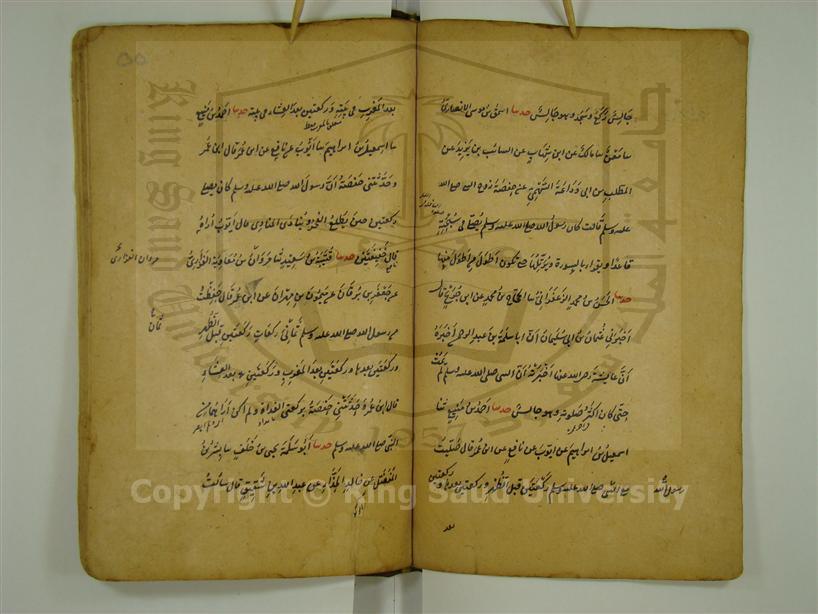 جالس ركع وسجد وهو جالس حدثنا اسحق بن موسى الانصاري
نا معن نا مالك عن ابن شهاب عن السائب بن يزيد عن
المطلب بن ابي وداعة السهمي عن حفصة زوج النبي صلى الله
عليه وسلم قالت كان رسول الله صلى الله عليه وسلم يصلي في سبحته
قاعدا ويقرأ بالسورة ويرتلها حتى تكون اطول من اطول منها
حدثنا الحسن بن محمد الزعفراني نا الحجاج بن محمد عن ابن جريج قال
اخبرني عثمان بن ابي سليمان ان ابا سلمة بن عبد الرحمن اخبره
ان عائشة رضي الله عنها اخبرته ان النبي صلى الله عليه وسلم لم يمت
حتى كان اكثر صلوته وهو جالس حدثنا احمد بن منيع نا
اسمعيل بن ابراهيم عن ايوب عن نافع عن ابن عمر قال صليت
رسول الله صلى الله عليه وسلم ركعتين قبل الظهر وركعتين بعدها وركعتين
بعد
بعد المغرب في بيته وركعتين بعد العشاء في بيته حدثنا احمد بن منيع
نا اسمعيل بن ابراهيم نا ايوب عن نافع عن ابن عمر قال ابن عمر
وحدثتني حفصة ان رسول الله صلى الله عليه وسلم كان يصلي
ركعتين حين يطلع الفجر وينادي المنادي قال ايوب اراه
قال خفيفتين حدثنا قتيبة بن سعيد نا مروان بن معاوية الفزاري
مروان الفزاري
عن جعفر بن برقان عن ميمون بن مهران عن ابن عمر قال حفظت
ثمان
من رسول الله صلى الله عليه وسلم ثماني ركعات ركعتين قبل الظهر
وركعتين بعدها وركعتين بعد المغرب وركعتين بعد العشاء
قال ابن عمر وحدثتني حفصة بركعتي الغداة ولم اكن اراهما من
النبي صلى الله عليه وسلم حدثنا ابو سلمة يحيى بن خلف نا بشر بن
المفضل عن خالد الحذاء عن عبد الله بن شقيق قال سألت
Copyright © King Saud University
King Saud University
جامعة الملك سعود
1957